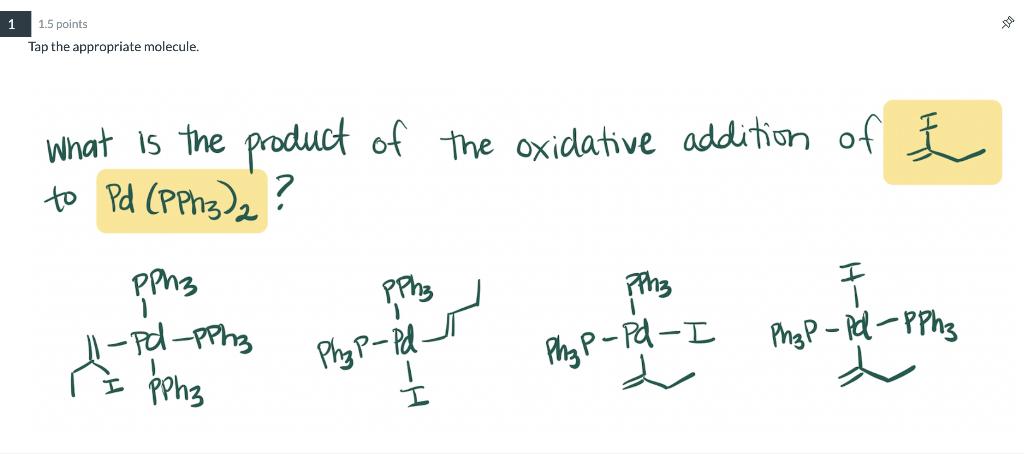 1 1.5 points
Tap the appropriate molecule.
What is the product of the oxidative addition of I
to Pd (PPh3)2 ?
PPh3 PPh3 PPh3 I
Pd-PPh3 Ph3P-Pd Ph3P-Pd-I Ph3P-Pd-PPh3
I PPh3 I